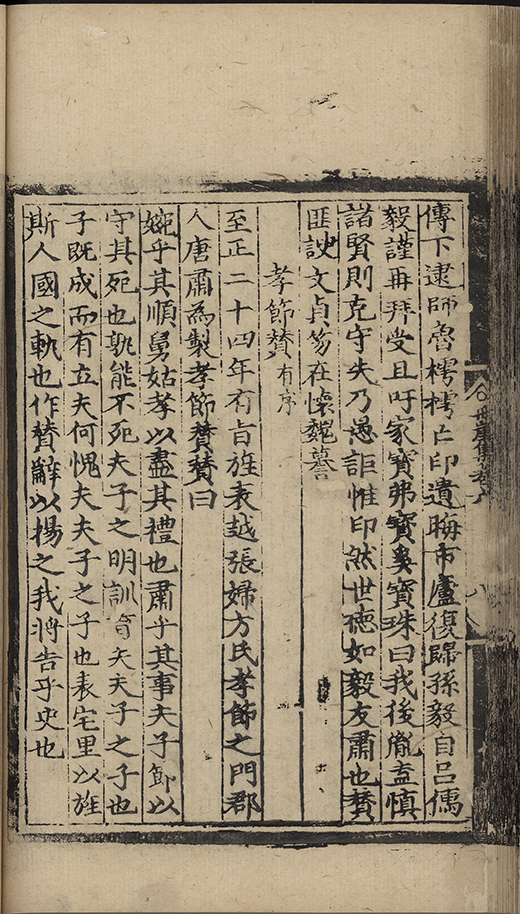 傳下逮師魯樗樗亡印遺晦市廬復歸孫毅自呂儒
毅謹再拜受且吁家寶弗寳奚寳珠曰我後胤盍慎
諸賢則克守失乃愚詎惟印然世德如毅友肅也賛
匪諛文貞笏在懷魏謩
孝節賛有序
至正二十四年有旨旌表越張婦方氏孝節之門郡
人唐肅為製孝節賛賛曰
婉乎其順舅姑孝以盡其禮也肅乎其事夫子節以
守其死也孰能不死夫子之明訓育夫夫子之子也
子既成而有立夫何愧夫夫子之子也表宅里以旌
斯人國之軌也作賛辭以揚之我將告乎史也
丹崖集卷六